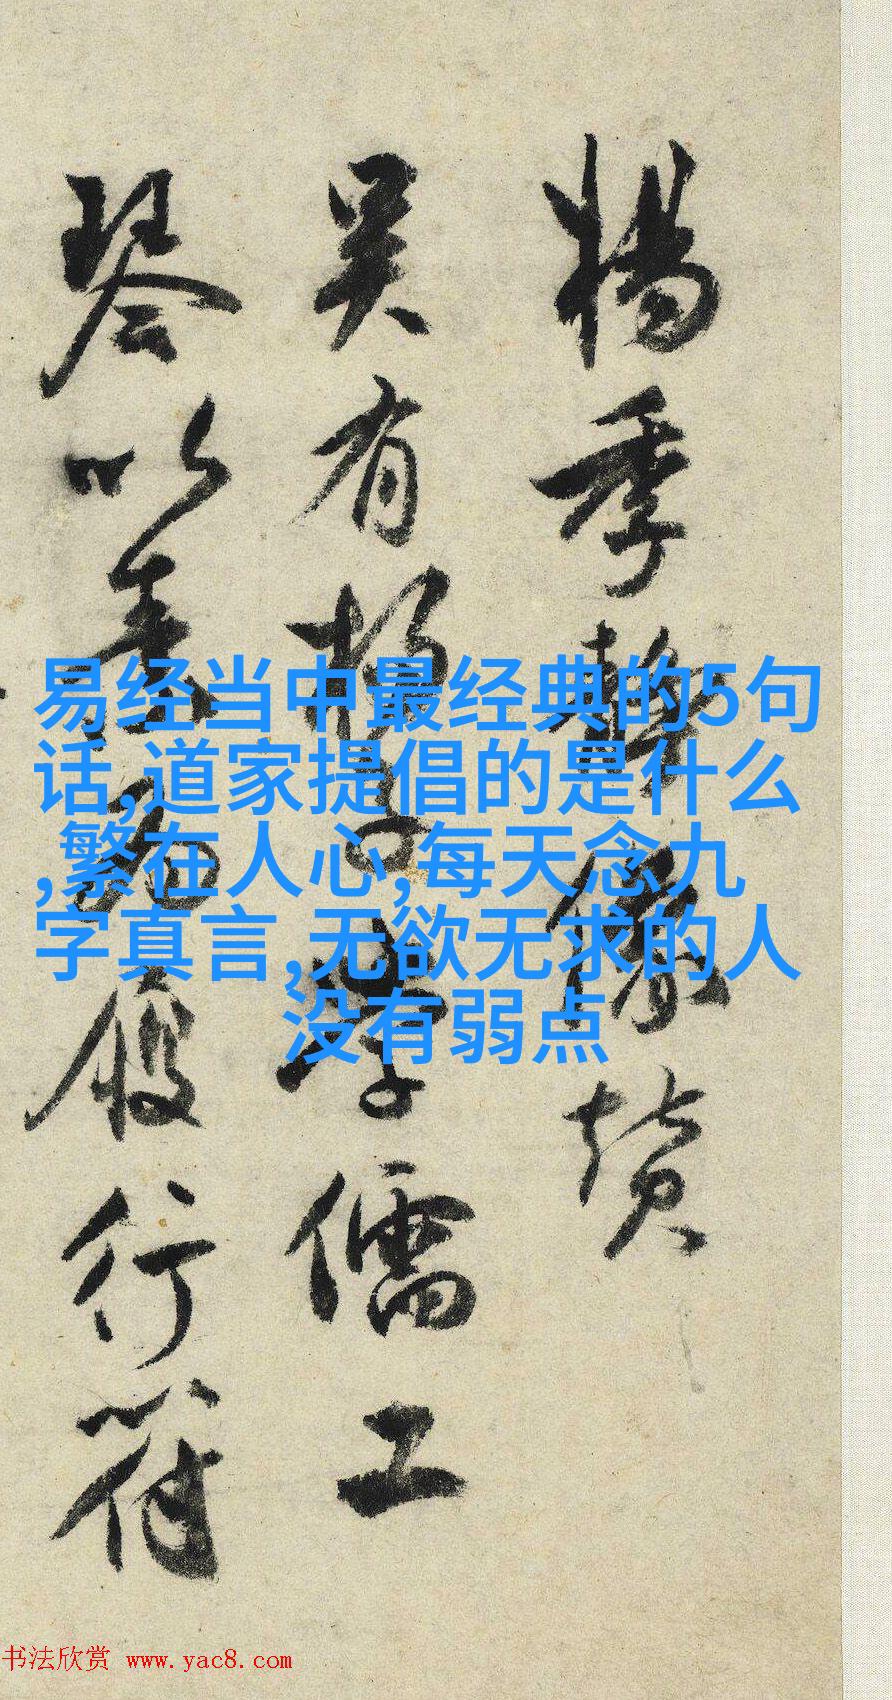 楊季静像贊
吴有楊子學儒工
琴以善為履行符
易经当中最经典的5句
话,道家提倡的是什么
,繁在人心,每天念九
字真言,无欲无求的人
没有弱点
书法欣赏 www.yac8.com